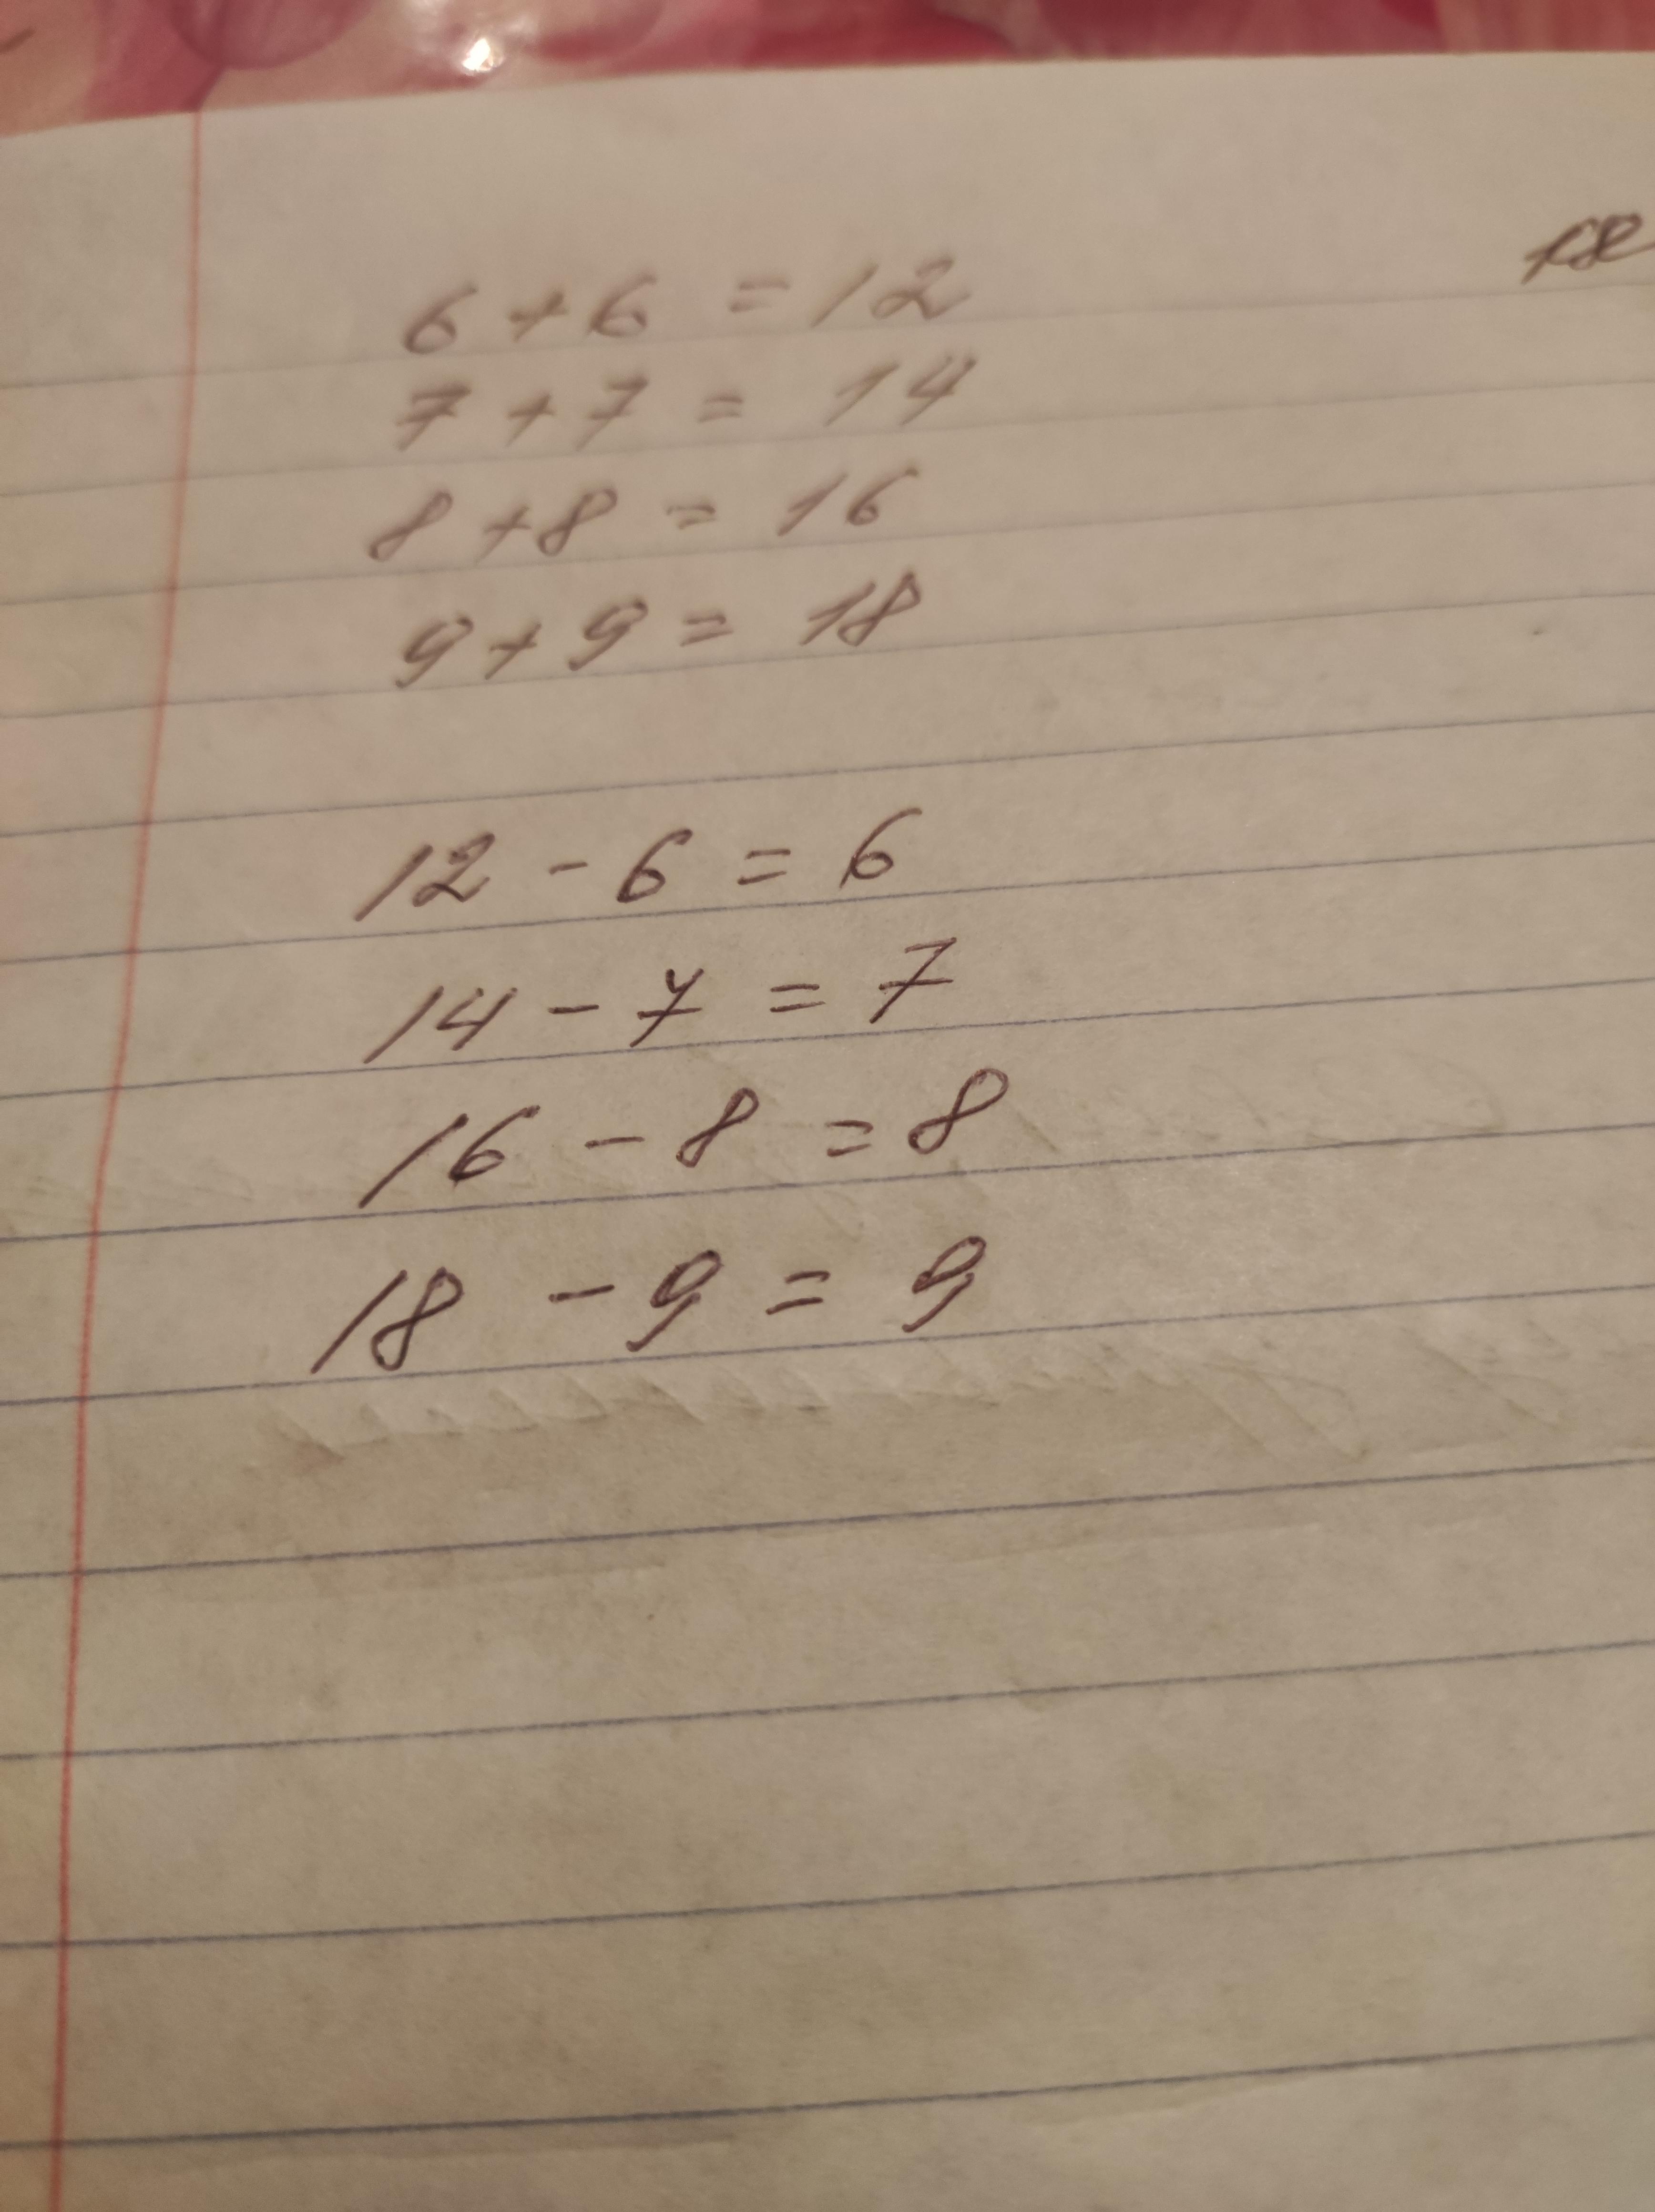 6 + 6 = 12
7 + 7 = 14
8 + 8 = 16
9 + 9 = 18
12 - 6 = 6
14 - 7 = 7
16 - 8 = 8
18 - 9 = 9